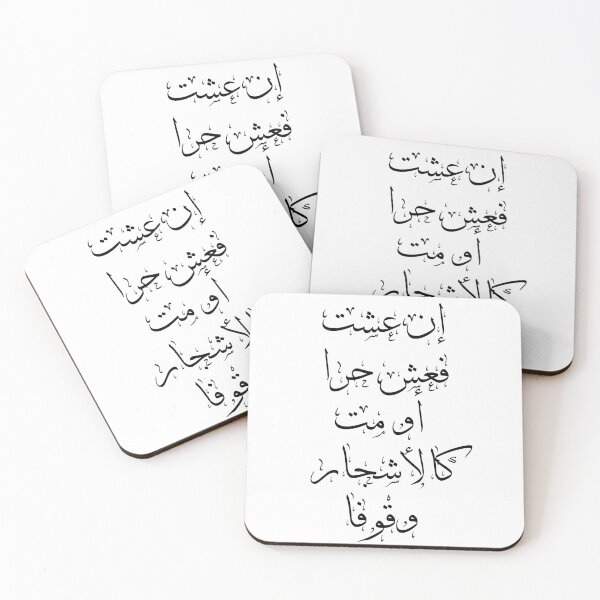 إن عشت
فعش حرا
إن عشت
فعش حرا
او مت
كالأشجار
إن عشت
فعش حرا
او مت
لأشجار
وقوفا
إن عشت
فعش حرا
او مت
كالأشجار
وقوفا